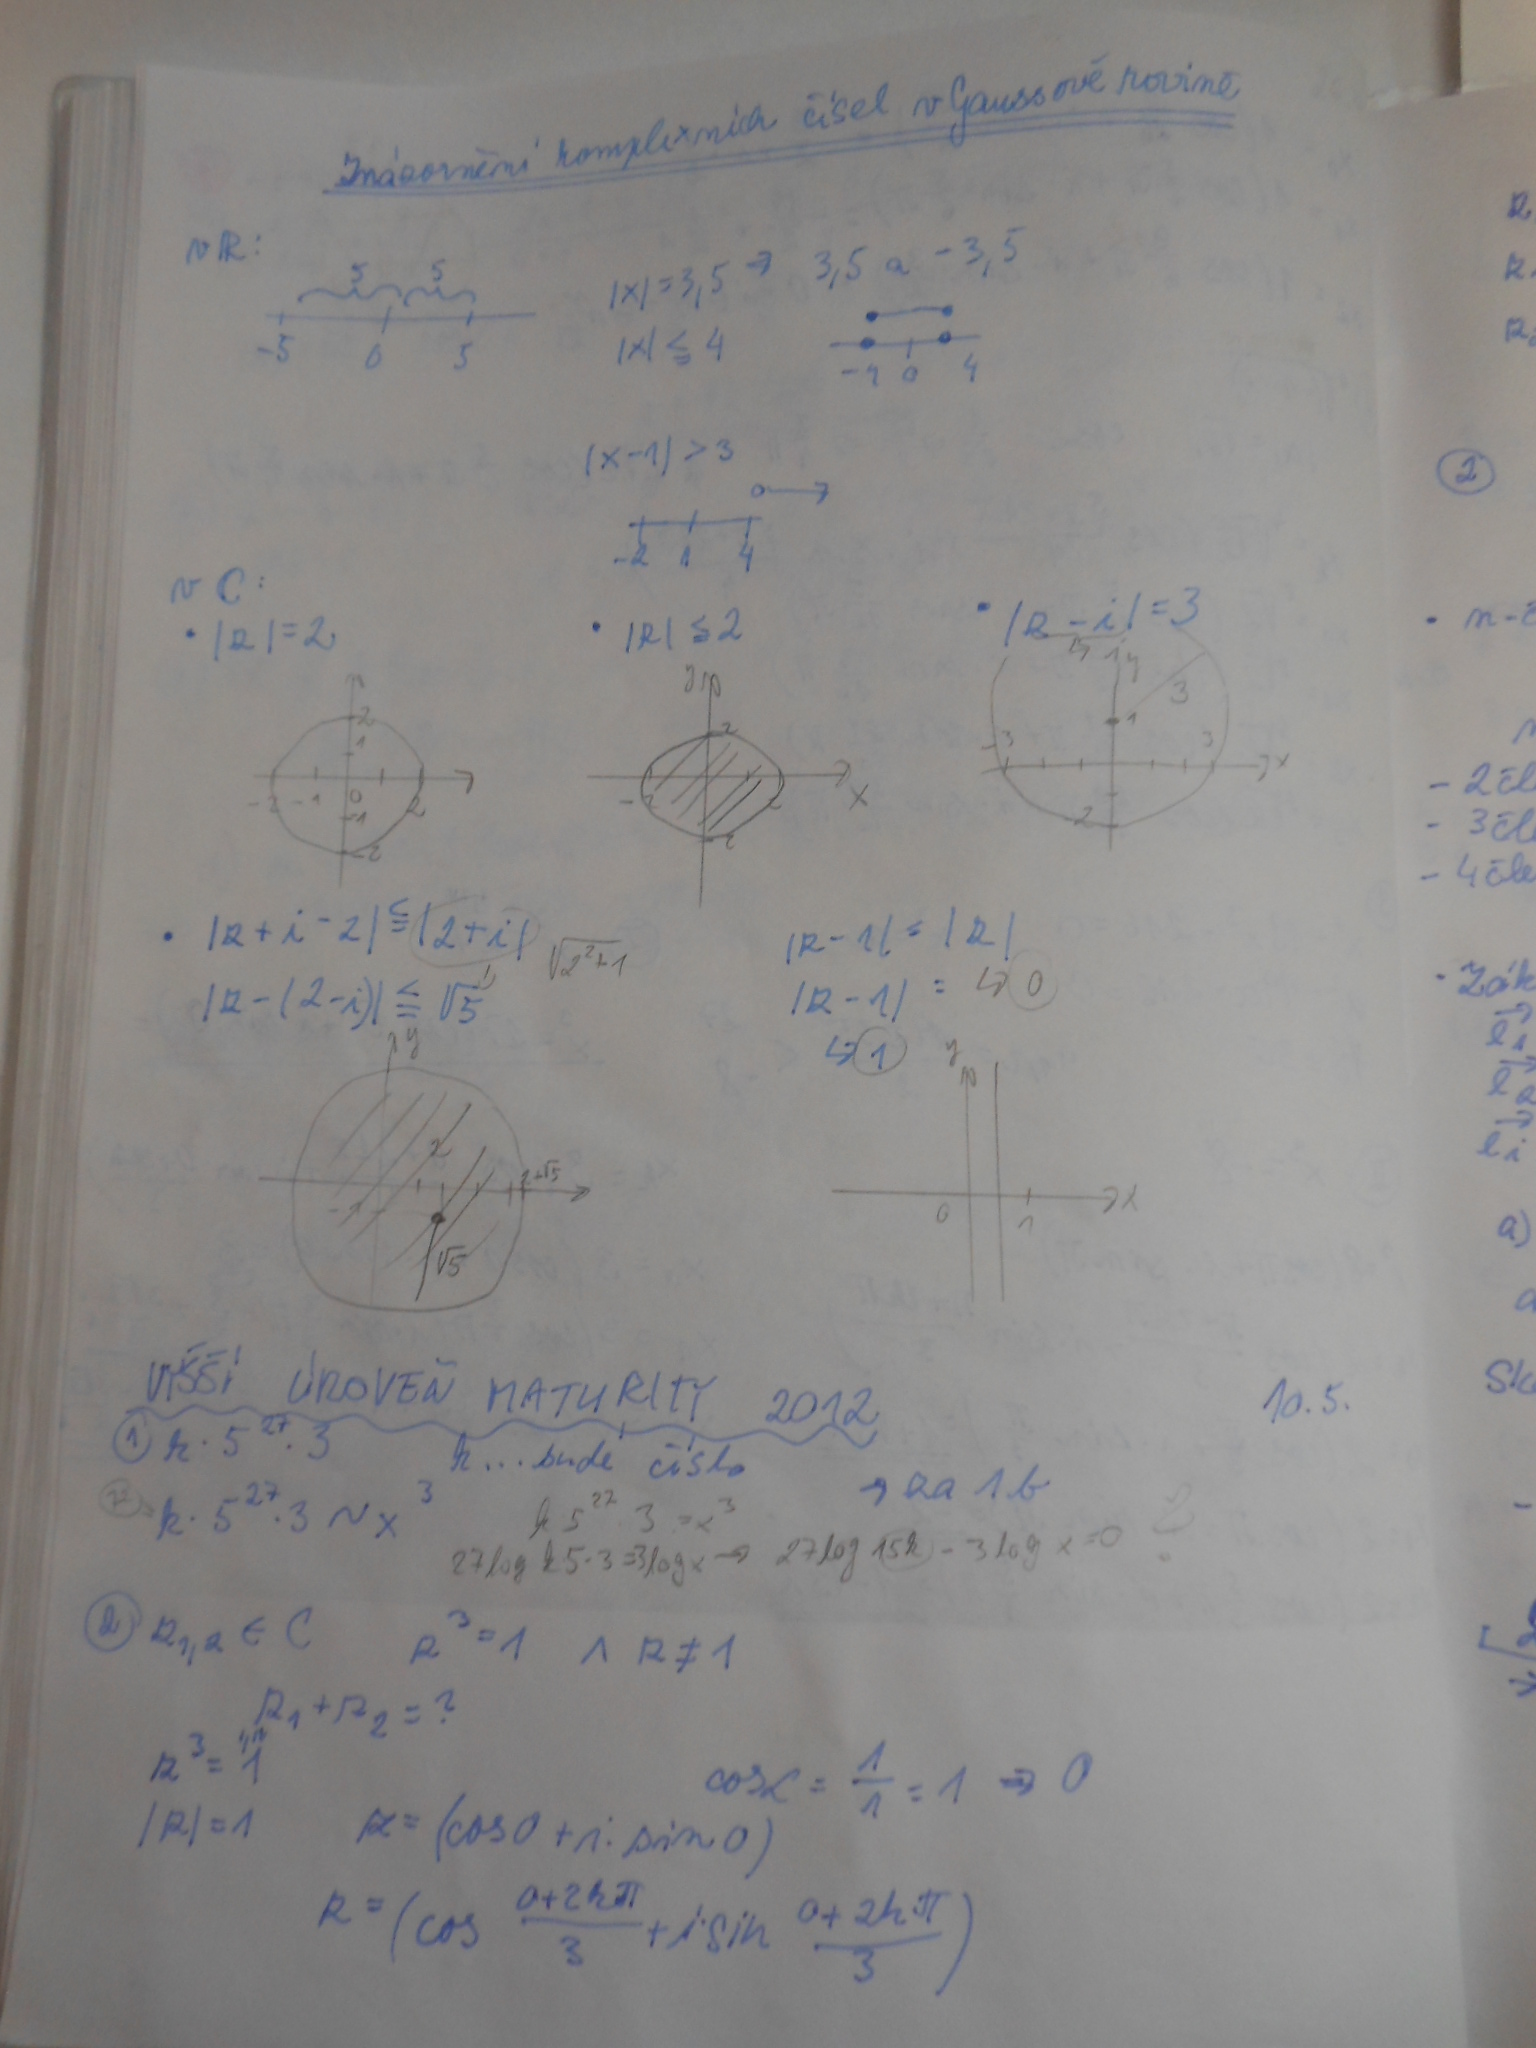 Znázornění komplexních čísel v Gaussově rovině
v R:
5 5
-5 0 5
|x| = 3,5 → 3,5 a -3,5
|x| ≤ 4
-4 0 4
|x-1| > 3
-2 1 4
v C:
• |z| = 2
2
1
-2 -1 0 2
-1
-2
• |z| ≤ 2
y
2
-2 2 x
-2
• |z - i| = 3
↳ 1 y
3
1
-3 3 x
-2
• |z + i - 2| ≤ |2 + i| √2²+1
|z - (2 - i)| ≤ √5
y
2 2+√5
-1
√5
|z - 1| = |z|
|z - 1| = ↳ 0
↳ 1
y
0 1 x
VIŠŠÍ ÚROVEŇ MATURITY 2012 10.5.
① k · 5²⁷ · 3 k... bude číslo
→ za 1 b
k · 5²⁷ · 3 ~ x³
k 5²⁷ · 3 = x³
27 log k5·3 = 3 log x → 27 log 15k - 3 log x = 0 ?
② z₁,₂ ∈ C z³ = 1 ∧ z ≠ 1
z₁ + z₂ = ?
z³ = 1
cos α = 1/1 = 1 ⇒ 0
|z| = 1 z = (cos 0 + i · sin 0)
z = (cos (0+2kπ)/3 + i · sin (0+2kπ)/3)
z
②
- 2čle
- 3čle
- 4čle
a)